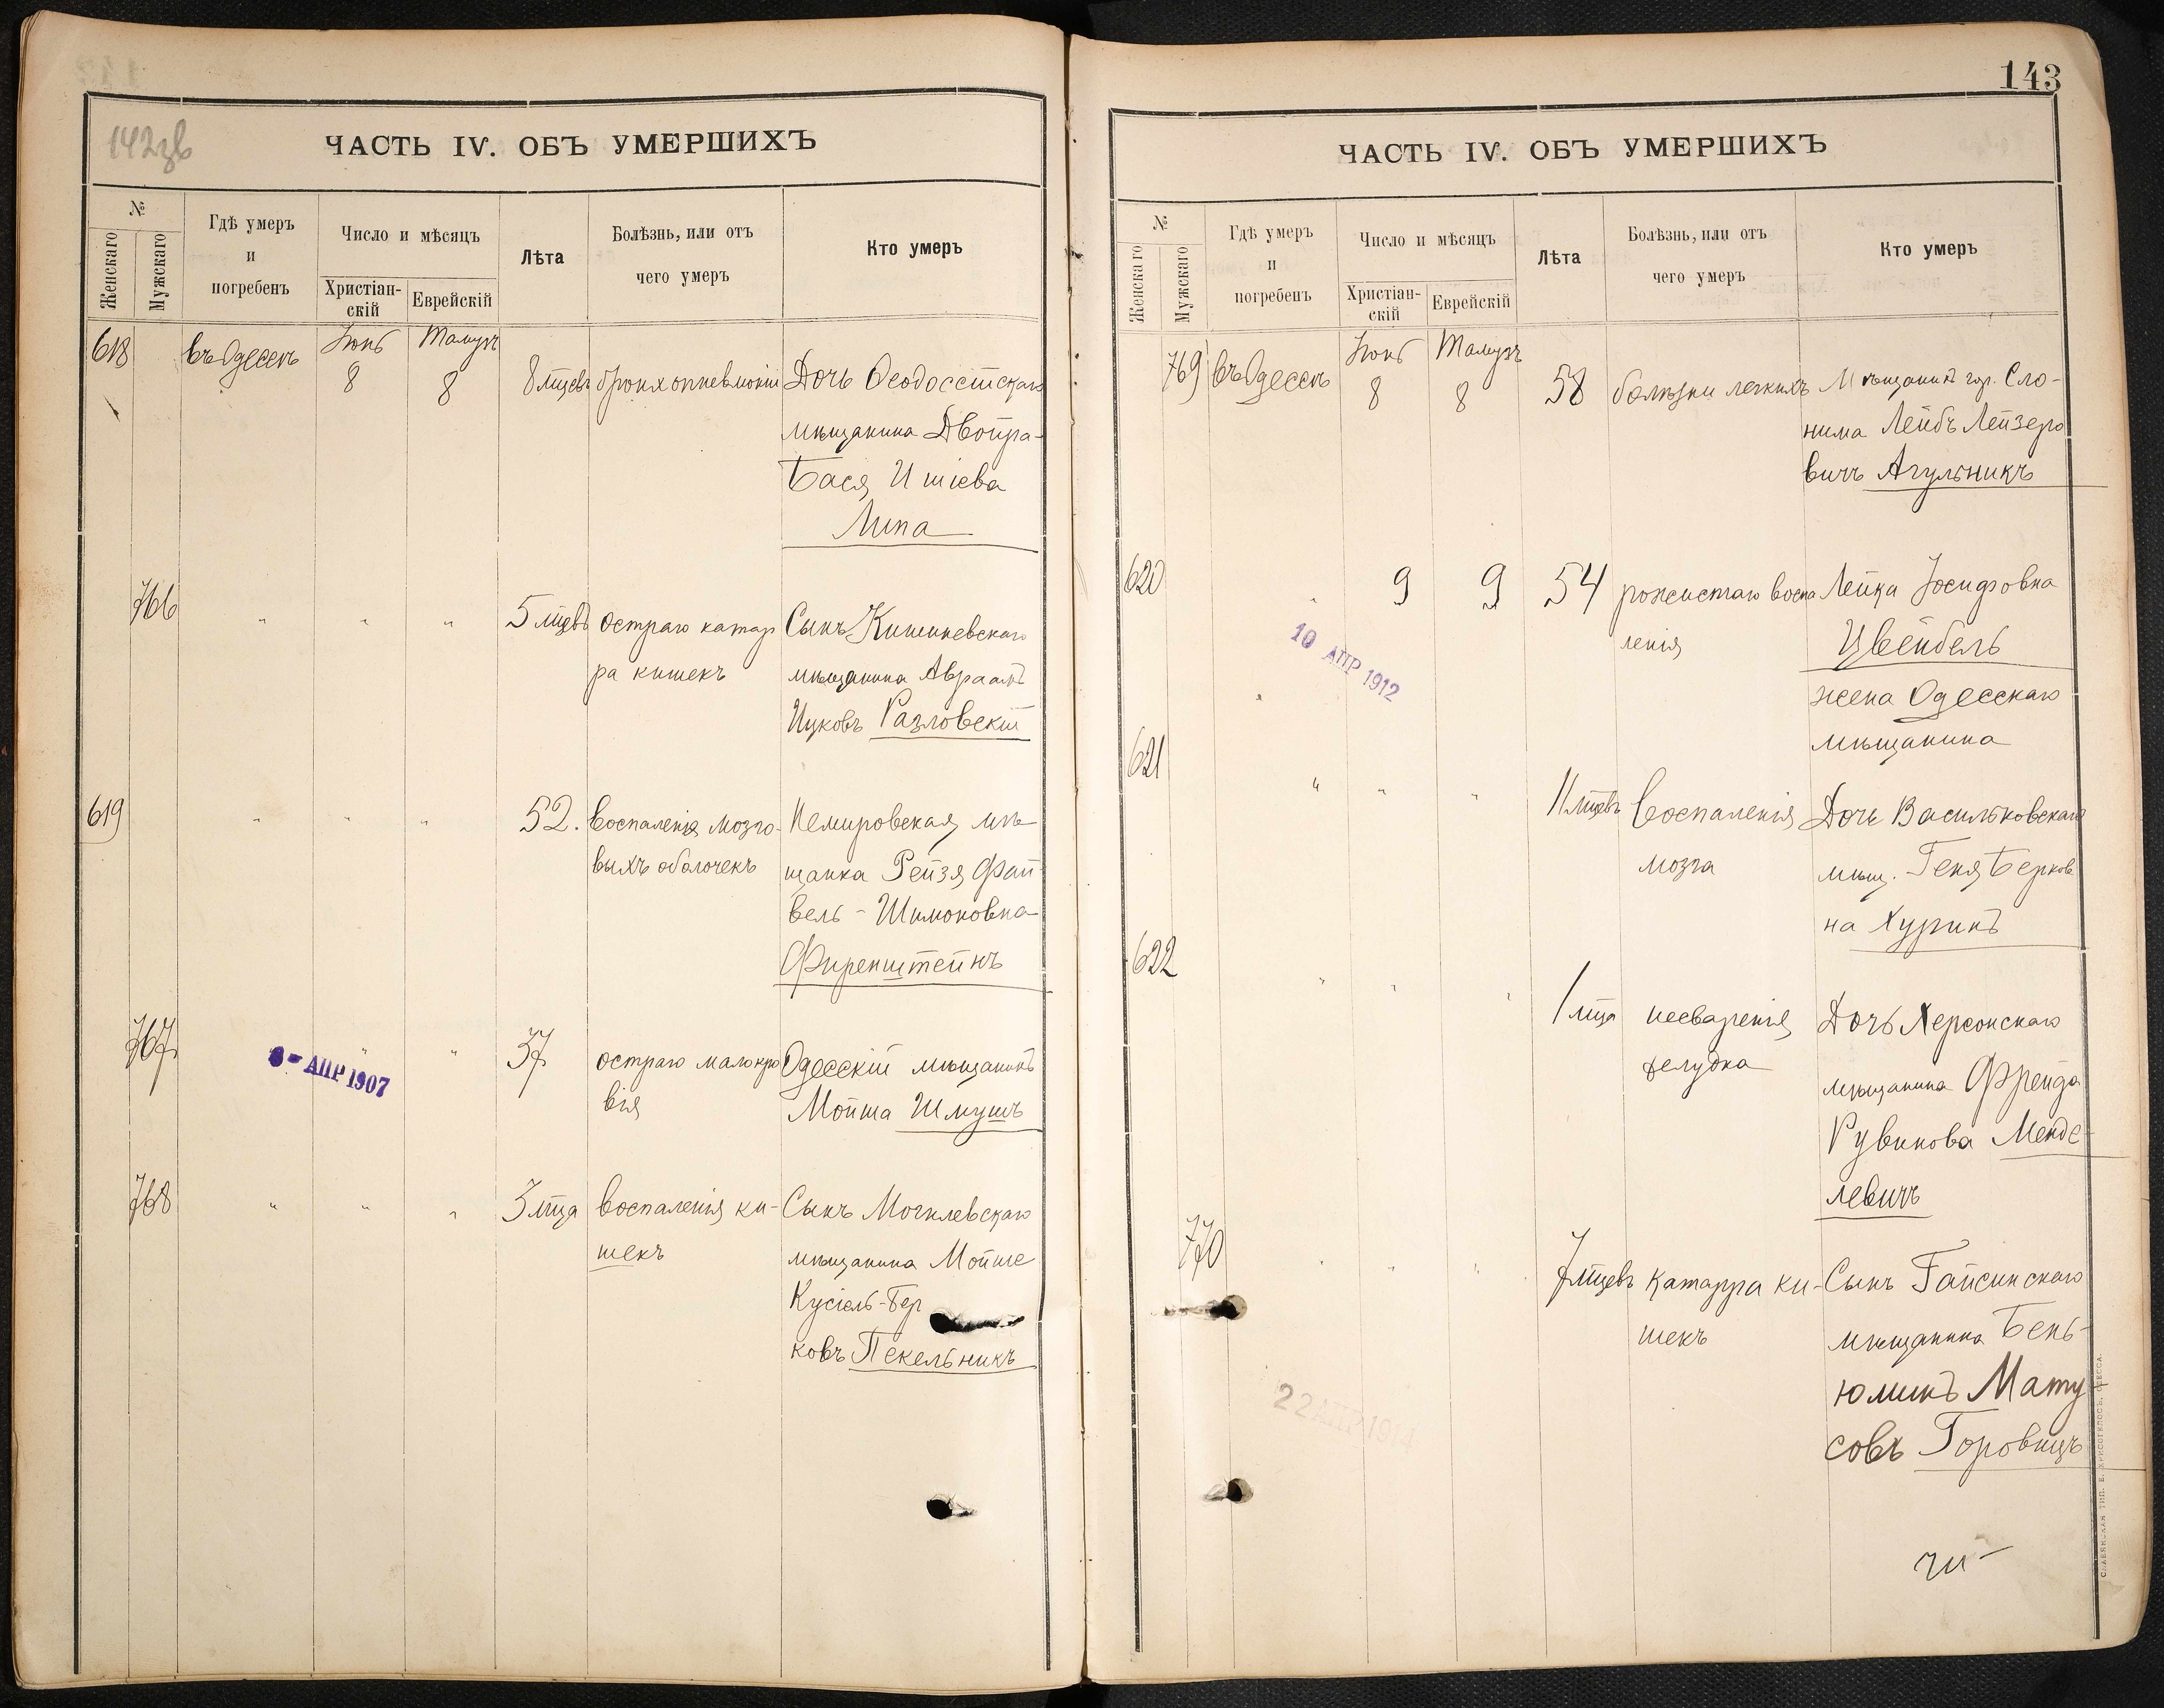 142зв
ЧАСТЬ IV. ОБЪ УМЕРШИХЪ
№
Женскаго
Мужскаго
Гдѣ умеръ
и
погребенъ
Число и мѣсяцъ
Христіан-
скій
Еврейскій
Лѣта
Болѣзнь, или отъ
чего умеръ
Кто умеръ
618 въ Одессѣ Іюнь 8 Тамузъ 8 8 мцевъ бронхопневмоніи Дочь Ѳеодосійскаго
мѣщанина Двойра-
Бася Ишіева
Липа
766 " " " 5 мцевъ остраго катар Сынъ Кишиневскаго
ра кишекъ мѣщанина Авраамъ
Ицковъ Разловскій
619 " " " 52. воспаленія мозго- Немировская мѣ
выхъ оболочекъ щанка Рейзя Фай
вель-Шимоновна
Фиренштейнъ
767 " " " 37 остраго малокро Одесскій мѣщанинъ
вія Мойша Шмушъ
8- АПР 1907
768 " " " 3 мца воспаленія ки- Сынъ Могилевскаго
шекъ мѣщанина Мойше
Кусіель-Бер
ковъ Пекельникъ
143
ЧАСТЬ IV. ОБЪ УМЕРШИХЪ
№
Женскаго
Мужскаго
Гдѣ умеръ
и
погребенъ
Число и мѣсяцъ
Христіан-
скій
Еврейскій
Лѣта
Болѣзнь, или отъ
чего умеръ
Кто умеръ
769 въ Одессѣ Іюнь 8 Тамузъ 8 58 болѣзни легкихъ Мѣщанинъ гор. Сло-
нима Лейбъ Лейзеро
вичъ Агульникъ
620 " 9 9 54 рожистаго воспа Лейка Іосифовна
ленія Цвейбель
жена Одесскаго
мѣщанина
10 АПР 1912
621 " " " 11 мцевъ Воспаленія Дочь Васильковскаго
мозга мѣщ. Геня Берков
на Хуринъ
622 " " " 1 мца несваренія Дочь Херсонскаго
желудка мѣщанина Фрейда
Рувинова Менде-
левичъ
770 " " " 7 мцевъ катарра ки- Сынъ Гайсинскаго
шекъ мѣщанина Бень-
юминъ Мату
совъ Горовицъ
22 АПР 1914
СЛАВЯНСКАЯ ТИП. Е. ХРИСОГЕЛОСЪ, ОДЕССА.